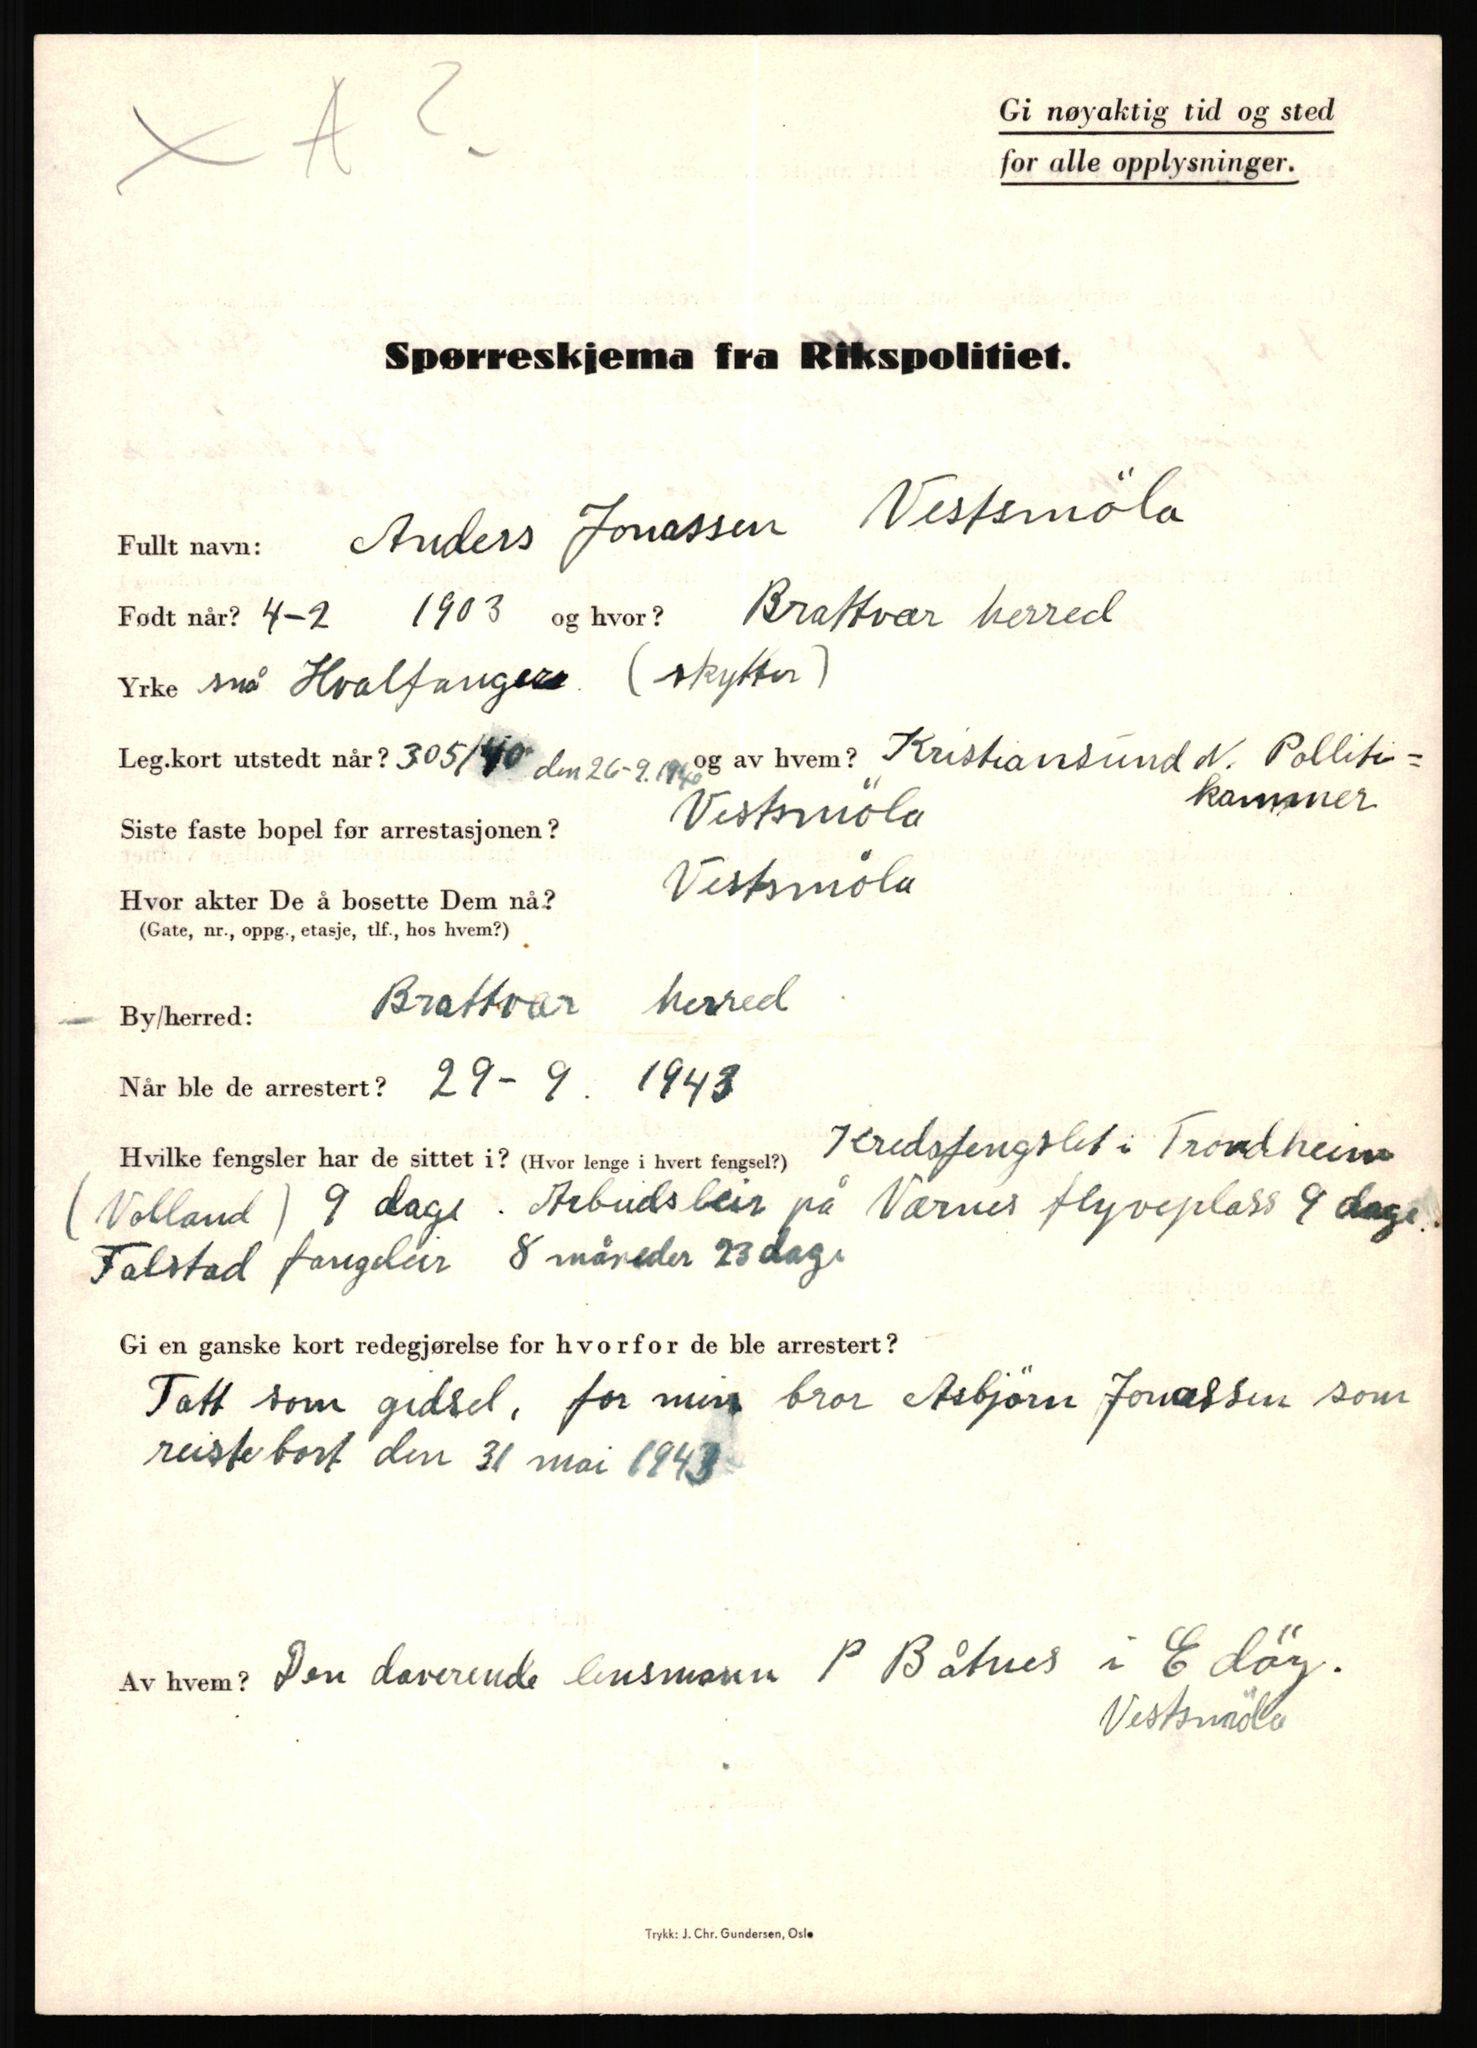 X A ?
Gi nøyaktig tid og sted
for alle opplysninger.
Spørreskjema fra Rikspolitiet.
Fullt navn: Anders Jonassen Vestsmöla
Født når? 4-2 1903 og hvor? Brattvær herred
Yrke små Hvalfangere. (skytter)
Leg.kort utstedt når? 305/40 den 26-9.1940 og av hvem? Kristiansund N. Polliti=
kammer
Siste faste bopel før arrestasjonen? Vestsmöla
Hvor akter De å bosette Dem nå? Vestsmöla
(Gate, nr., oppg., etasje, tlf., hos hvem?)
By/herred: Brattvær herred
Når ble de arrestert? 29-9. 1943
Hvilke fengsler har de sittet i? (Hvor lenge i hvert fengsel?) Kredsfengslet i Trondheim
(Volland) 9 dage. Arbeidsleir på Værnes flyveplass 9 dage.
Falstad fangeleir 8 måneder 23 dage
Gi en ganske kort redegjørelse for hvorfor de ble arrestert?
Tatt som gidsel, for min bror Asbjörn Jonassen som
reiste bort den 31 mai 1943
Av hvem? Den daverende lensmann P Båtnes i Edöy.
Vestsmöla
Trykk: J. Chr. Gundersen, Oslo